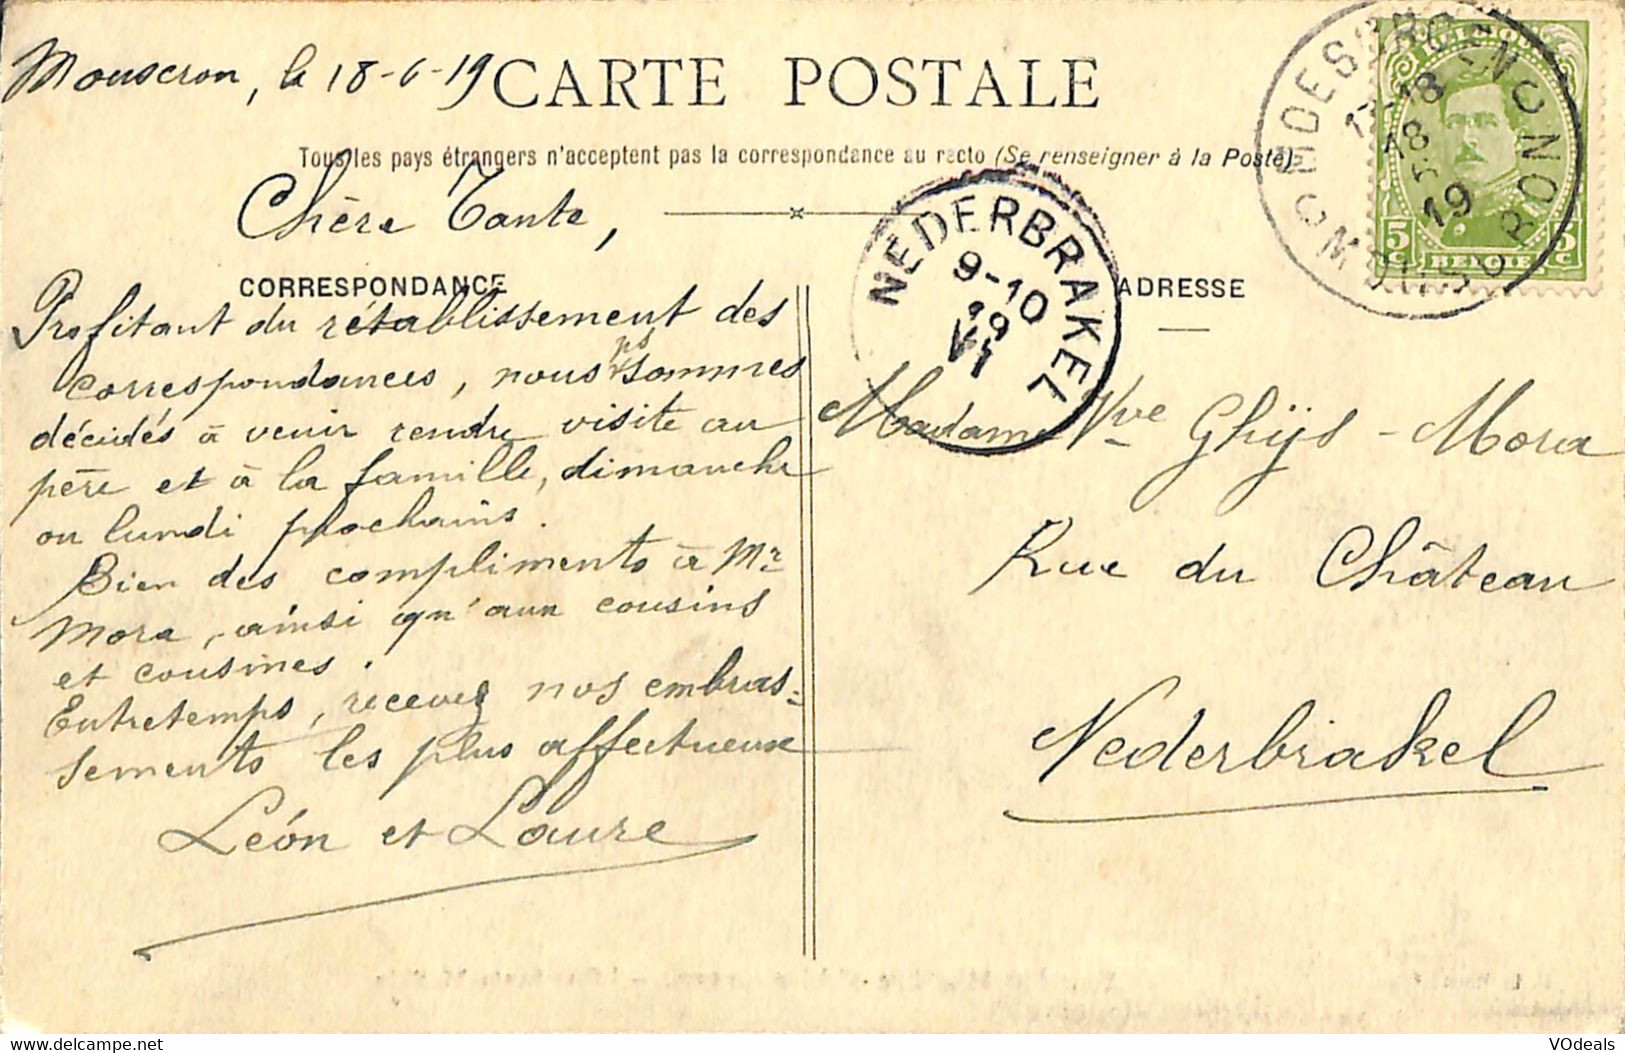 Mouscron, le 18-6-19
CARTE POSTALE
Tous les pays étrangers n'acceptent pas la correspondance au recto (Se renseigner à la Poste)
Chère Tante,
CORRESPONDANCE
Profitant du rétablissement des
correspondances, nous ns sommes
décidés à venir rendre visite au
père et à la famille, dimanche
ou lundi prochains.
Bien des compliments à Mr
Mora, ainsi qu'aux cousins
et cousines.
Entretemps, recevez nos embras=
sements les plus affectueux
Léon et Laure
ADRESSE
Madame Vve Ghijs - Mora
Rue du Château
Nederbrakel
NEDERBRAKEL
9-10
19
VI
BELGIQUE
5 C BELGIË 5 C
MOUSCRON
18
19
VOdeals